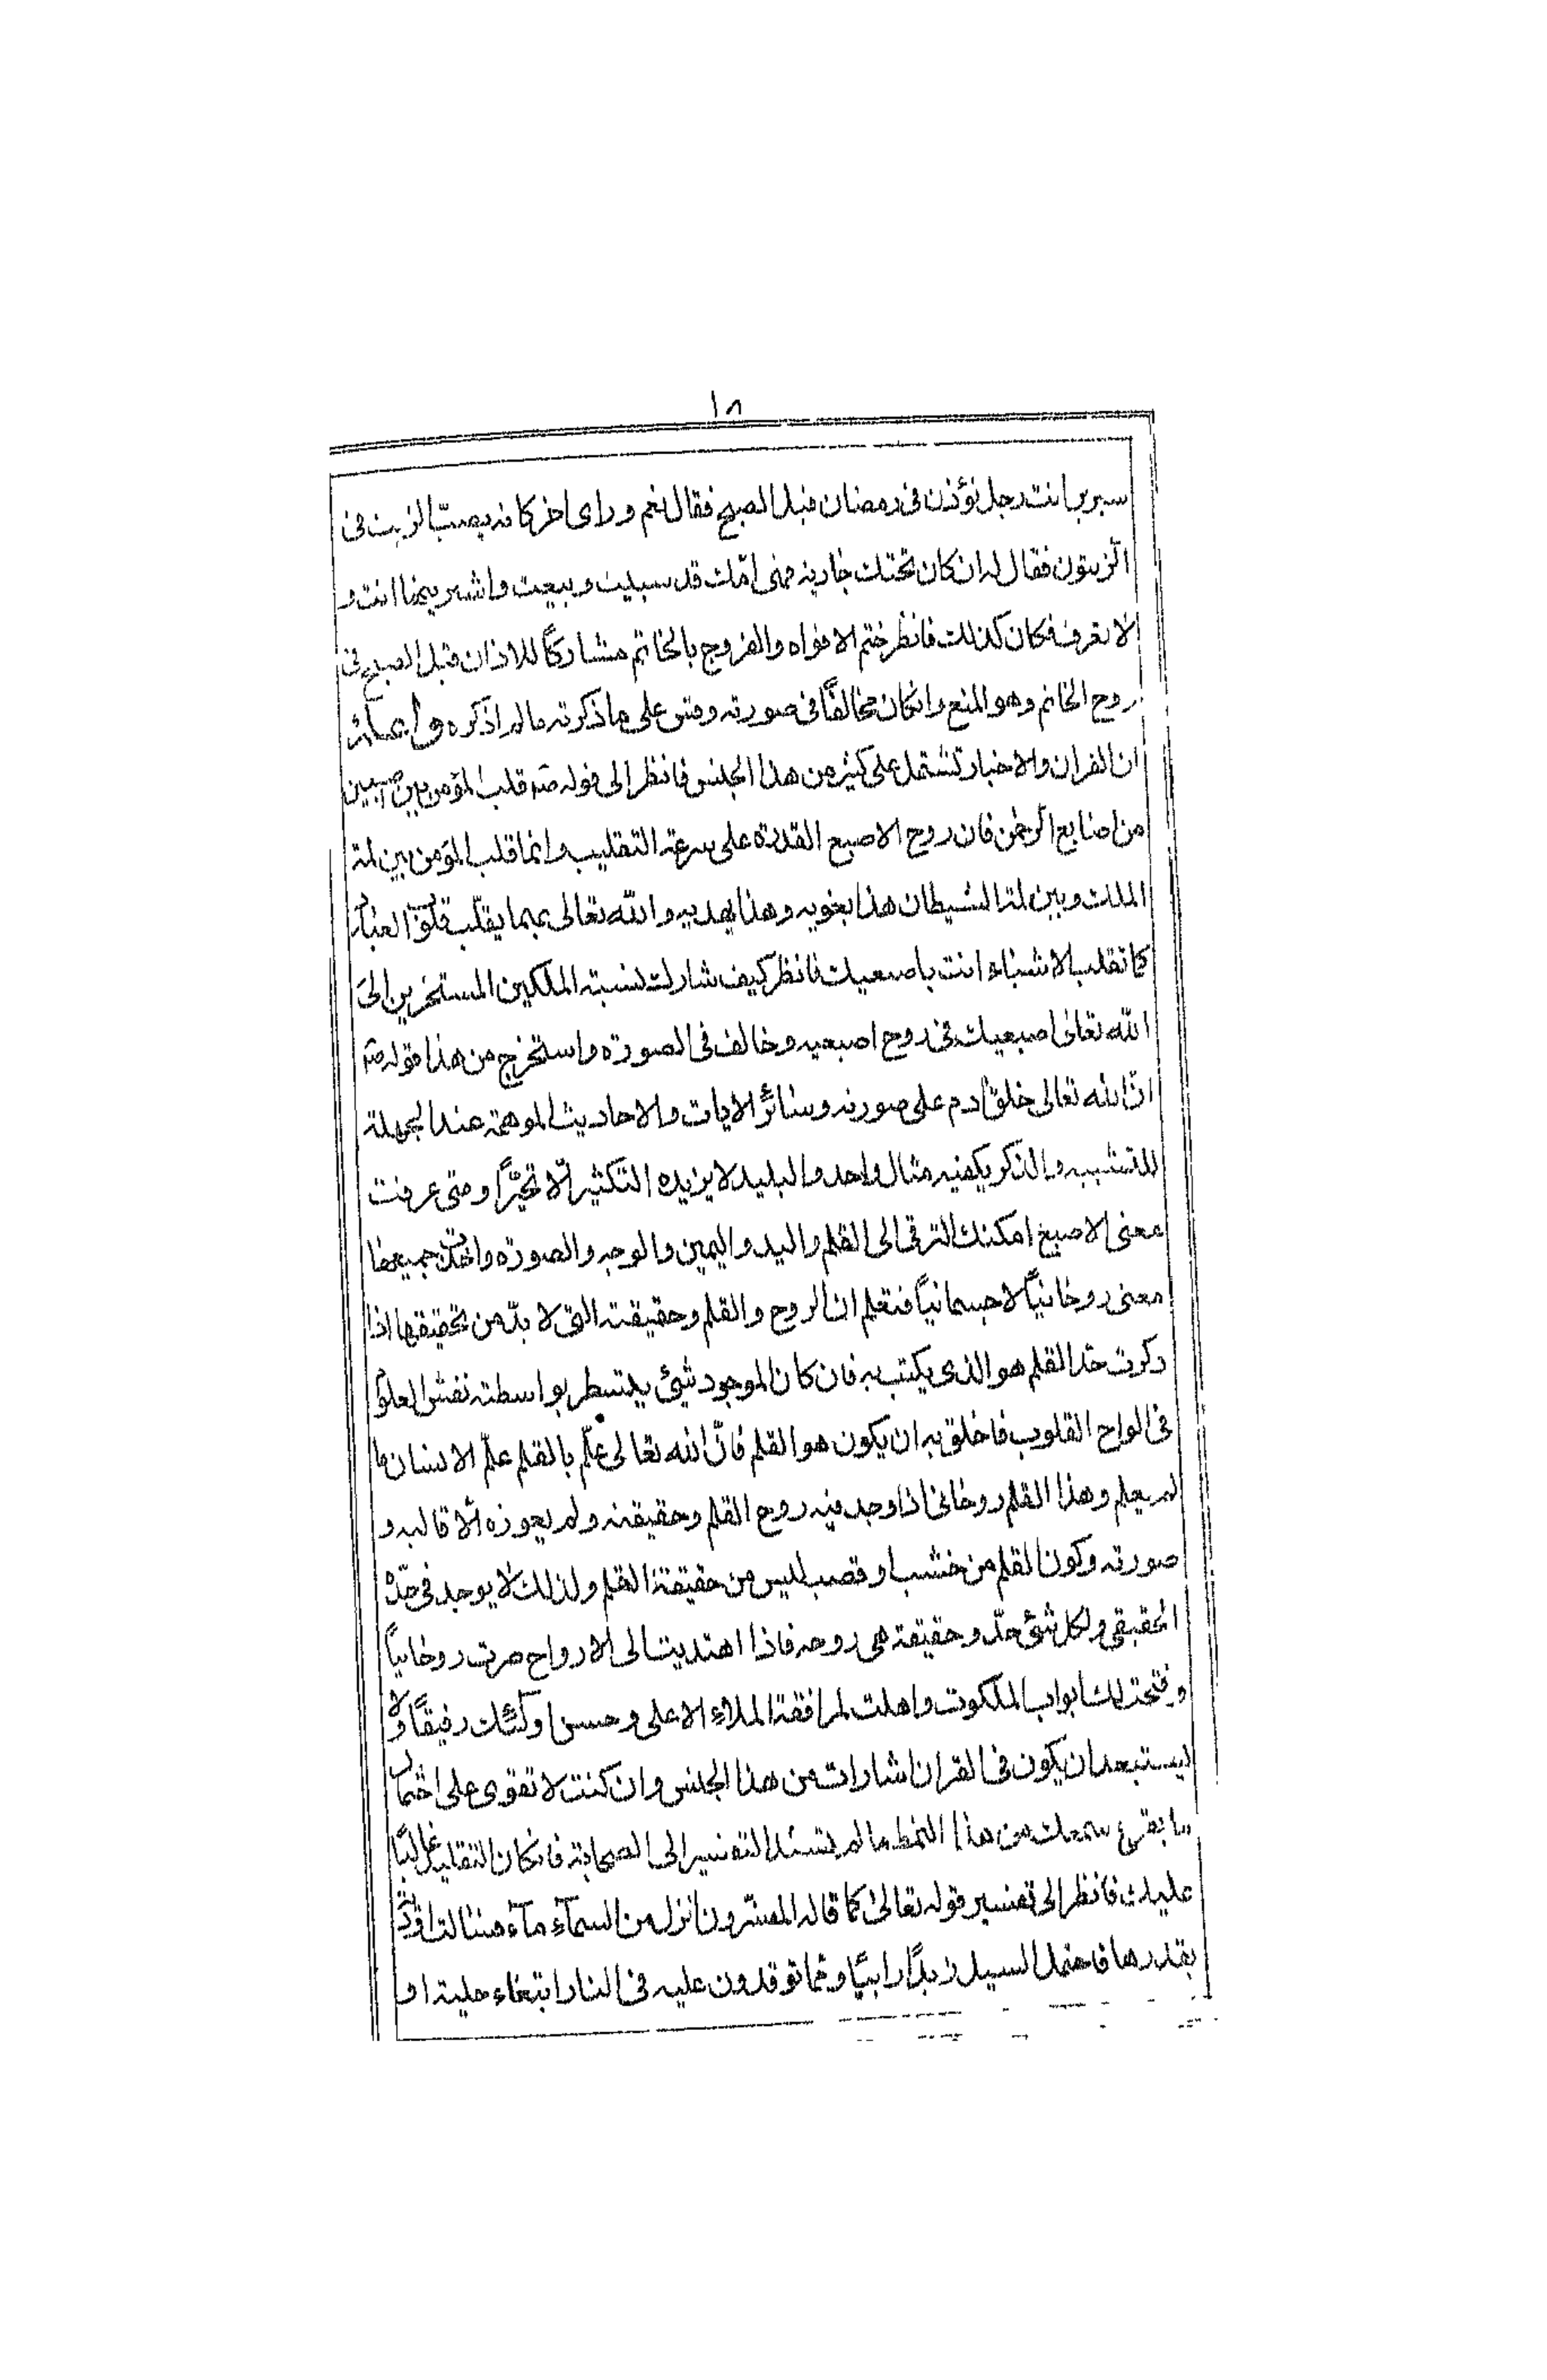 ١٨
سيرين انت رجل تؤذن فى رمضان قبل الصبح فقال نعم وراى اخر كانه يصبّ الزيت فى
الزيتون فقال له ان كان تحتك جارية فهى امّك قد سبيت وبيعت واشتريتها انت و
لا تعرف فكان كذلك فانظر ختم الافواه والفروج بالخاتم مشاركًا للاذان قبل الصبح فى
روح الخاتم وهو المنع وان كان مخالفًا فى صورته وقس على ما ذكرته ما لم اذكره واعلم
ان القران والاخبار تشتمل على كثير من هذا الجنس فانظر الى قوله صۤ قلب المؤمن بين اصبعين
من اصابع الرّحمن فان روح الاصبع القدرة على سرعة التقليب وانما قلب المؤمن بين لمة
الملك وبين لمة الشيطان هذا يغويه وهذا يهديه والله تعالى بهما يقلّب قلوب العباد
كما تقلب الاشياء انت باصبعيك فانظر كيف شارك نسبة الملكين المسخرين الى
الله تعالى اصبعيك فى روح اصبعيه وخالف فى الصورة واستخرج من هذا قوله صۤ
انّ الله تعالى خلق ادم على صورته وسائر الايات والاحاديث الموهمة عند الجهلة
للتشبيه والذكى يكفيه مثال واحد والبليد لا يزيده التكثير الّا تحيّرًا ومتى عرفت
معنى الاصبع امكنك الترقى الى القلم واليد واليمين والوجه والصورة واخذت جميعها
معنى روحانيًا لا جسمانيًا فتعلم ان الروح والقلم وحقيقته التى لا بدّ من تحقيقها اذا
ذكرت حدّ القلم هو الذى يكتب به فان كان الموجود شئ يتسطر بواسطته نقش العلوم
فى الواح القلوب فاخلق به ان يكون هو القلم فانّ الله تعالى علّم بالقلم علّم الانسان ما
لم يعلم وهذا القلم روحانى اذا وجد فيه روح القلم وحقيقته ولم يعوزه الّا قالبه و
صورته وكون القلم من خشب او قصب ليس من حقيقة القلم ولذلك لا يوجد فى حدّه
الحقيقى ولكل شئ حدّ وحقيقة هى روحه فاذا اهتديت الى الارواح صرت روحانيًا
وفتحت لك ابواب الملكوت واهلت لمرافقة الملاء الاعلى وحسن اولئك رفيقًا ولا
يستبعد ان يكون فى القران اشارات من هذا الجنس وان كنت لا تقوى على احتمال
ما يقرع سمعك من هذا النمط ما لم يسند التفسير الى الصحابة فان كان التقليد غالبًا
عليك فانظر الى تفسير قوله تعالى كما قاله المفسّرون انزل من السماۤء ماۤء فسالت اودية
بقدرها فاحتمل السيل زبدًا رابيًا ومما توقدون عليه فى النار ابتغاء حلية او